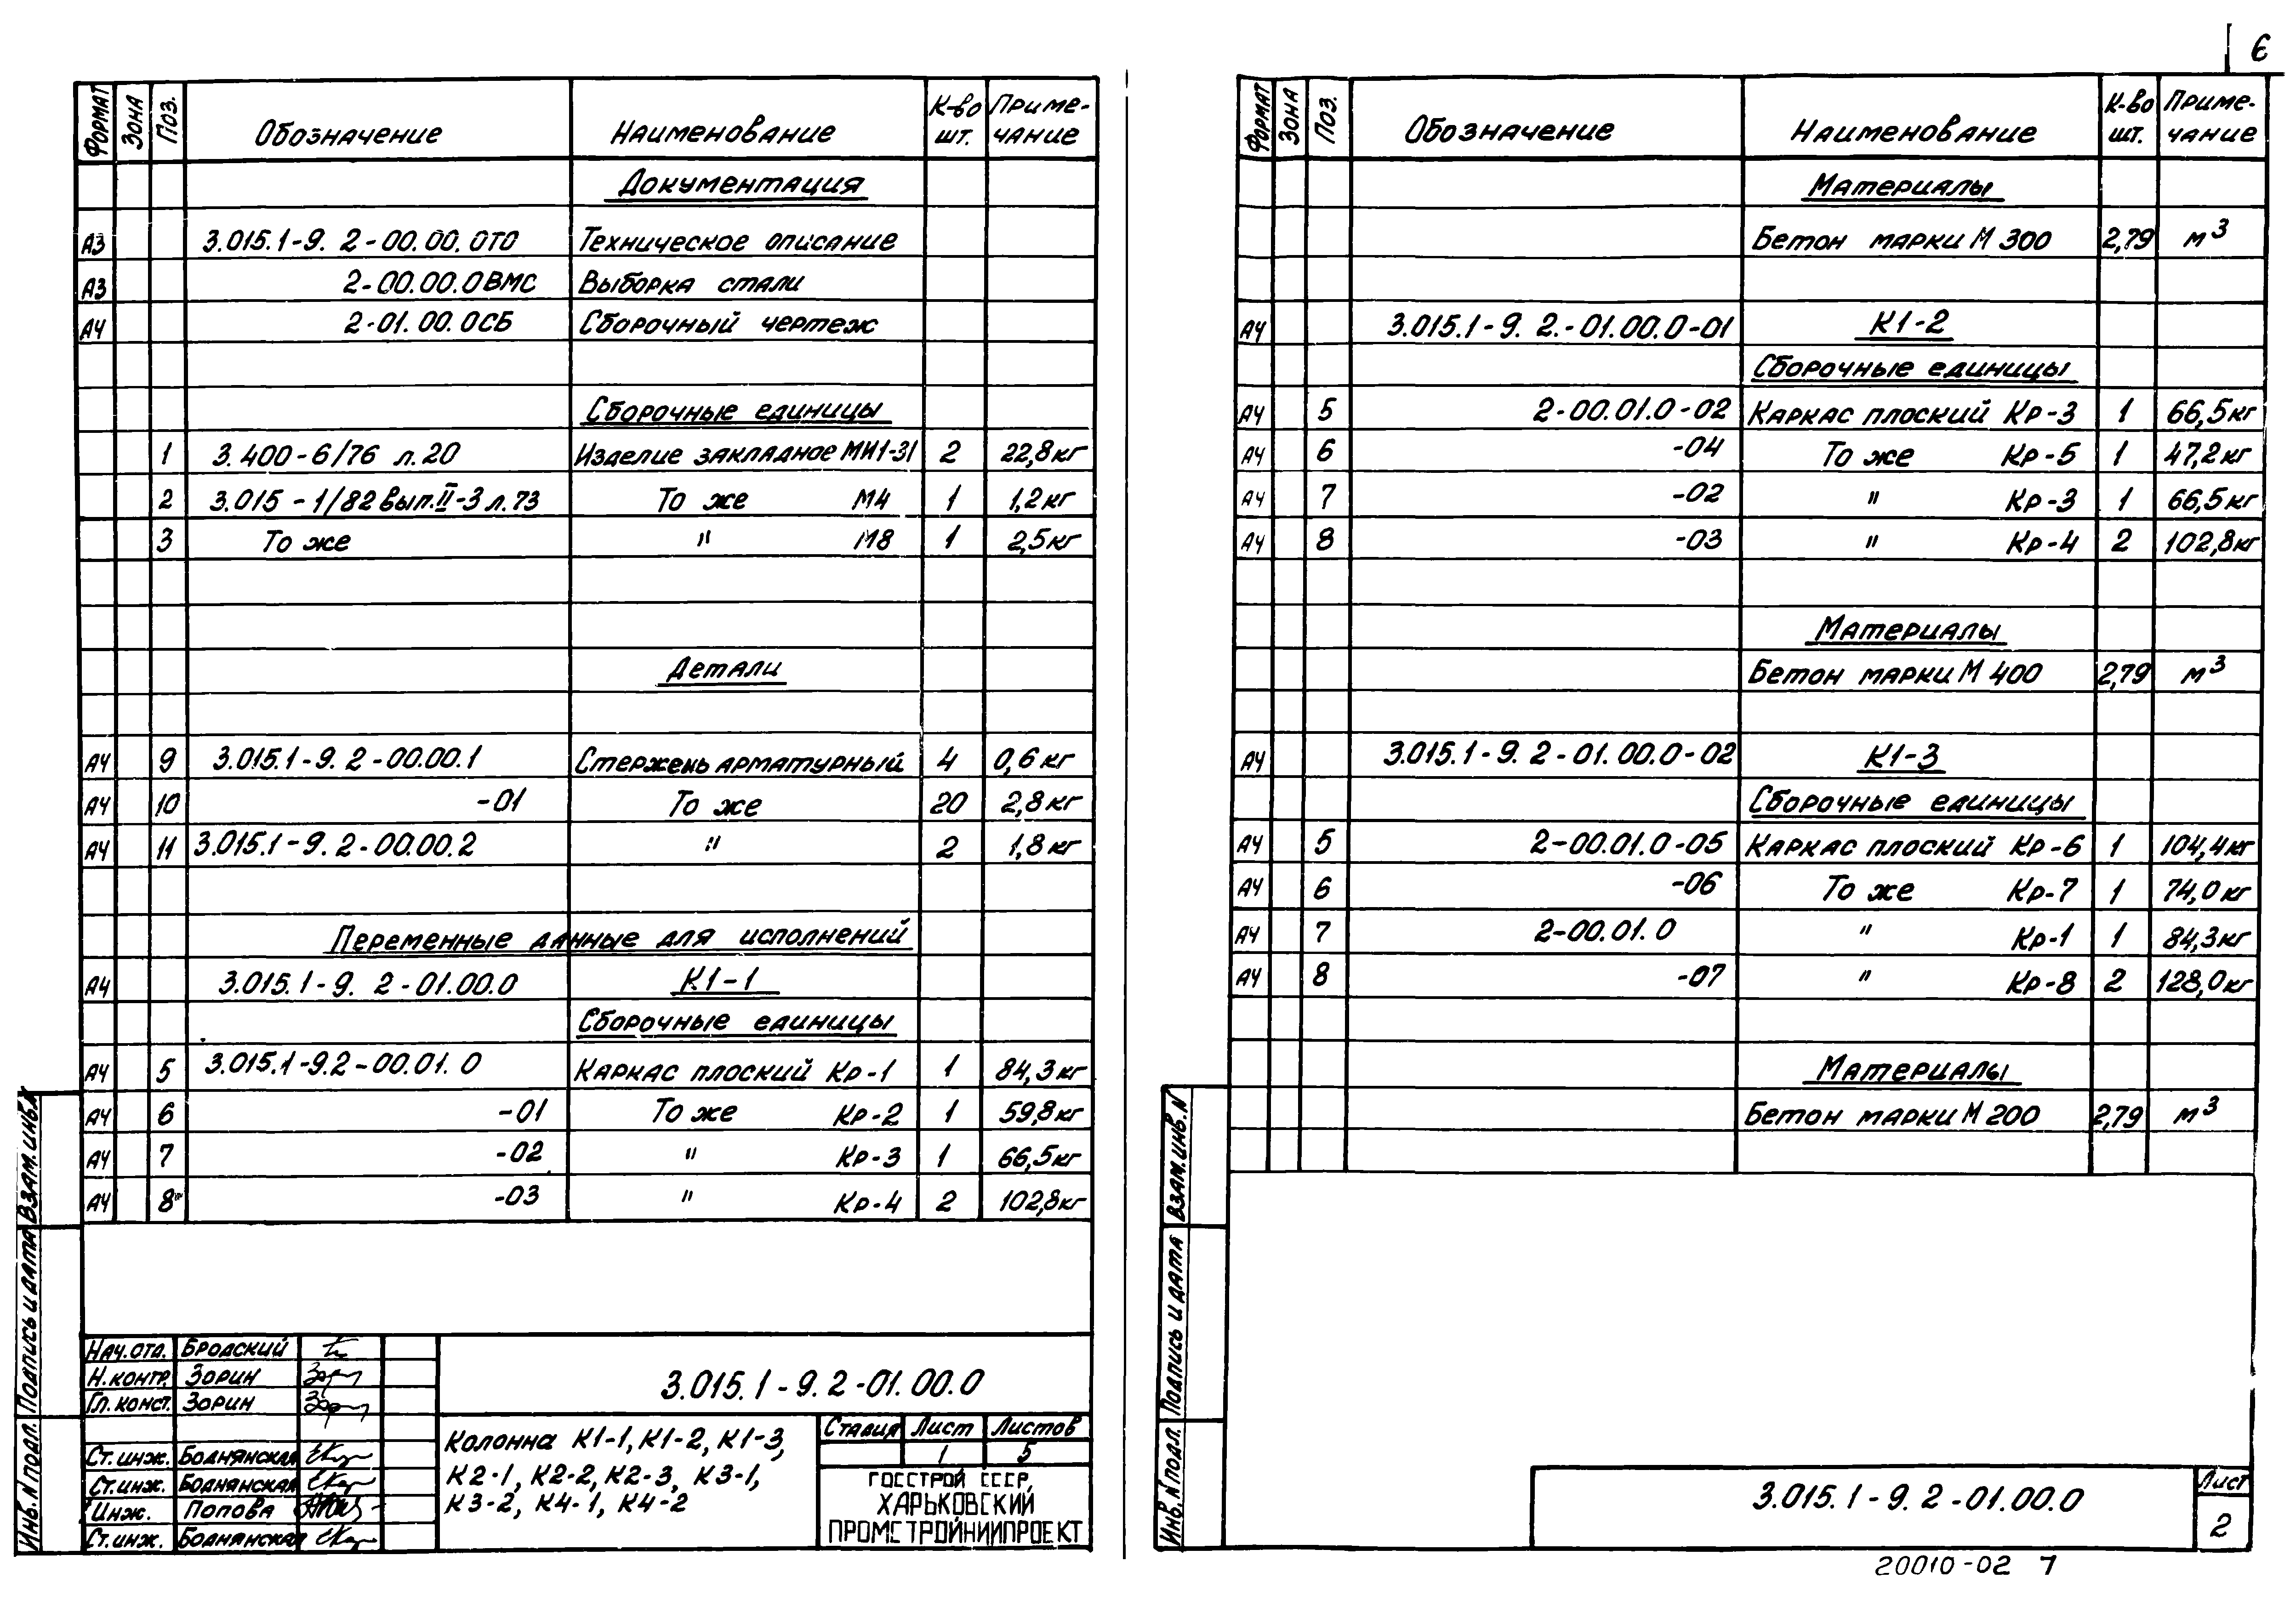 6
ФОРМАТ ЗОНА ПОЗ. Обозначение Наименование К-во шт. Приме-чание
Документация
А3 3.015.1-9. 2-00.00.0ТО Техническое описание
А3 2-00.00.0ВМС Выборка стали
А4 2-01.00.0СБ Сборочный чертеж
Сборочные единицы
1 3.400-6/76 л.20 Изделие закладное МИ1-31 2 22,8кг
2 3.015-1/82 вып.II-3 л.73 То же М4 1 1,2кг
3 То же " М8 1 2,5кг
Детали
А4 9 3.015.1-9. 2-00.00.1 Стержень арматурный 4 0,6кг
А4 10 -01 То же 20 2,8кг
А4 11 3.015.1-9. 2-00.00.2 " 2 1,8кг
Переменные данные для исполнений
А4 3.015.1-9. 2-01.00.0 К1-1
Сборочные единицы
А4 5 3.015.1-9.2-00.01.0 Каркас плоский Кр-1 1 84,3кг
А4 6 -01 То же Кр-2 1 59,8кг
А4 7 -02 " Кр-3 1 66,5кг
А4 8 -03 " Кр-4 2 102,8кг
Нач.отд. Бродский
Н.контр. Зорин
Гл.конст. Зорин
Ст.инж. Боднянская
Ст.инж. Боднянская
Инж. Попова
Ст.инж. Боднянская
3.015.1-9. 2-01.00.0
Колонна К1-1, К1-2, К1-3,
К2-1, К2-2, К2-3, К3-1,
К3-2, К4-1, К4-2
Стадия Лист Листов
1 5
ГОССТРОЙ СССР,
ХАРЬКОВСКИЙ
ПРОМСТРОЙНИИПРОЕКТ
Инв.N подл. Подпись и дата Взам.инв.N
ФОРМАТ ЗОНА ПОЗ. Обозначение Наименование К-во шт. Приме-чание
Материалы
Бетон марки М 300 2,79 м³
А4 3.015.1-9. 2.-01.00.0-01 К1-2
Сборочные единицы
А4 5 2-00.01.0-02 Каркас плоский Кр-3 1 66,5кг
А4 6 -04 То же Кр-5 1 47,2кг
А4 7 -02 " Кр-3 1 66,5кг
А4 8 -03 " Кр-4 2 102,8кг
Материалы
Бетон марки М 400 2,79 м³
А4 3.015.1-9. 2-01.00.0-02 К1-3
Сборочные единицы
А4 5 2-00.01.0-05 Каркас плоский Кр-6 1 104,4кг
А4 6 -06 То же Кр-7 1 74,0кг
А4 7 2-00.01.0 " Кр-1 1 84,3кг
А4 8 -07 " Кр-8 2 128,0кг
Материалы
Бетон марки М 200 2,79 м³
Инв.N подл. Подпись и дата Взам.инв.N
3.015.1-9. 2-01.00.0
Лист
2
20010-02 7